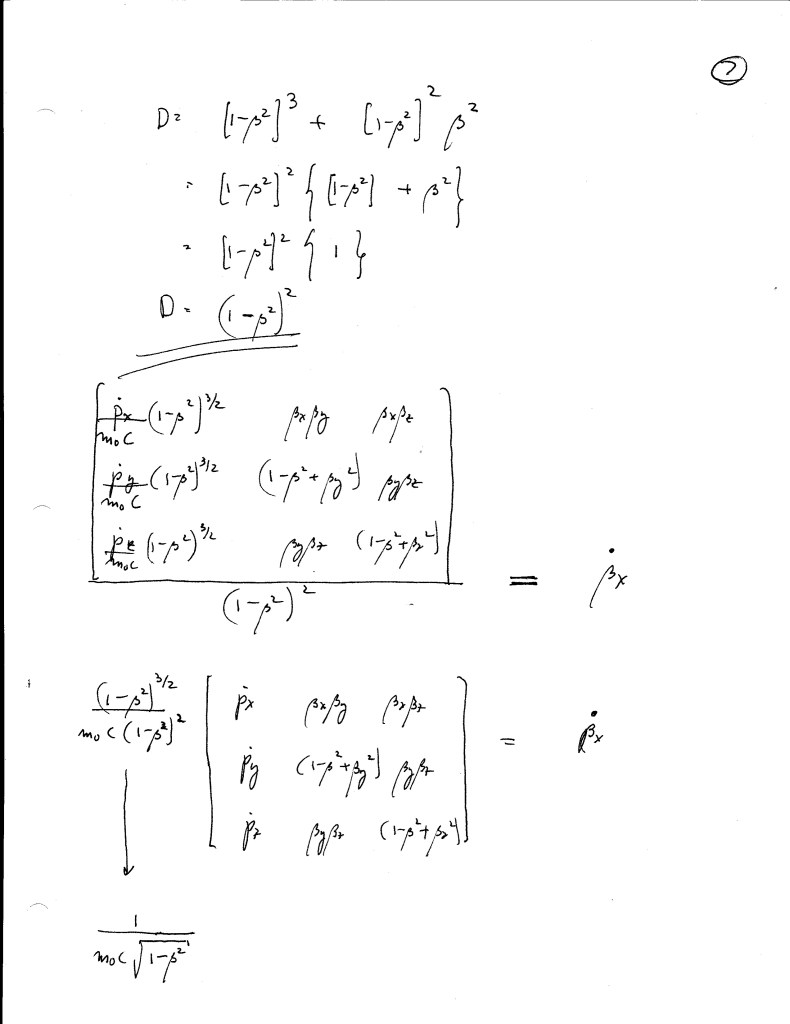 2
D = [1-β²]³ + [1-β²]² β²
= [1-β²]² { [1-β²] + β² }
= [1-β²]² { 1 }
D = (1-β²)²
ṗx/m₀c (1-β²)^3/2 βxβy βxβz
ṗy/m₀c (1-β²)^3/2 (1-β²+βy²) βyβz
ṗz/m₀c (1-β²)^3/2 βyβz (1-β²+βz²)
(1-β²)² = β̇x
(1-β²)^3/2 / m₀c (1-β²)² [ ṗx βxβy βxβz
ṗy (1-β²+βy²) βyβz = β̇x
ṗz βyβz (1-β²+βz²) ]
1 / m₀c √1-β²